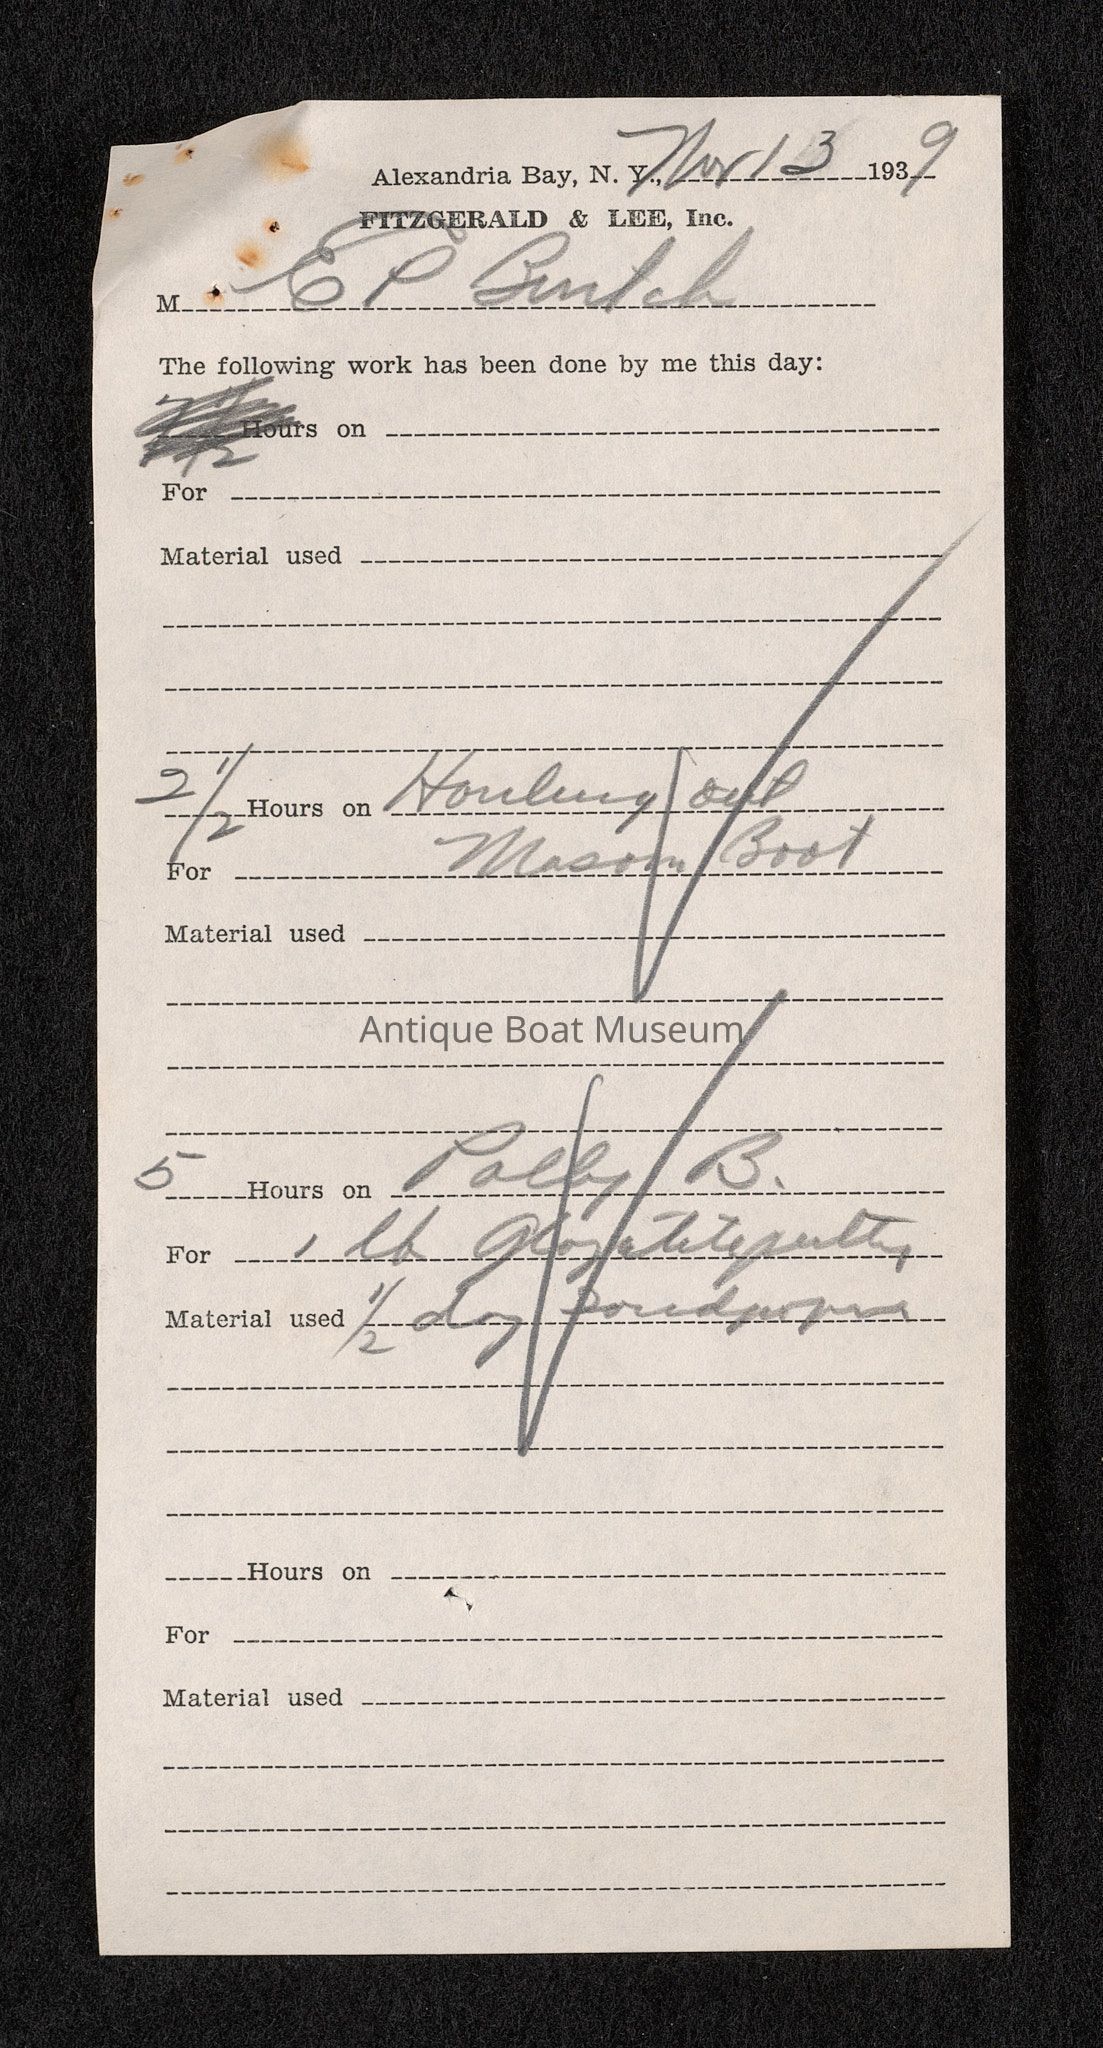 Alexandria Bay, N. Y., Nov 13 1939
FITZGERALD & LEE, Inc.
M E P
The following work has been done by me this day:
Hours on
For
Material used
2 1/2 Hours on Houling out
For Mason Boat
Material used
Antique Boat Museum
5 Hours on Polly B.
For 1 lb
Material used 1/2 doz Sandpaper
Hours on
For
Material used